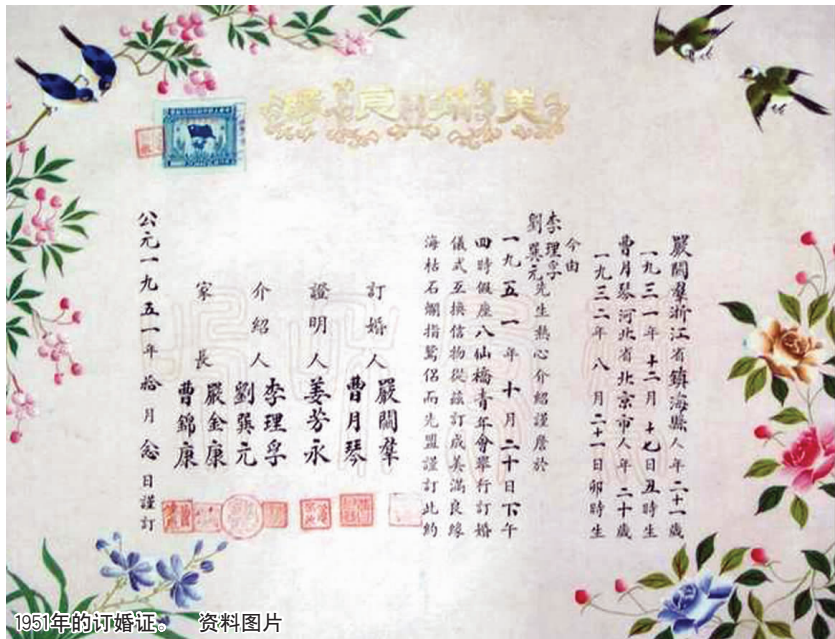 美姻良緣
嚴闓羣浙江省鎮海縣人年二十一歲
一九三一年十二月十七日丑時生
曹月琴河北省北京市人年二十歲
一九三二年八月二十一日卯時生
今由
李理孚
劉巽元先生熱心介紹謹詹於
一九五一年十月二十日下午
四時假座八仙橋青年會舉行訂婚
儀式互換信物從茲訂成美滿良緣
海枯石爛指鴛侶而先盟謹訂此約
訂婚人 嚴闓羣
曹月琴
證明人 姜芳永
介紹人 李理孚
劉巽元
家長 嚴金康
曹錦康
公元一九五一年拾月念日謹訂
1951年的订婚证。 资料图片